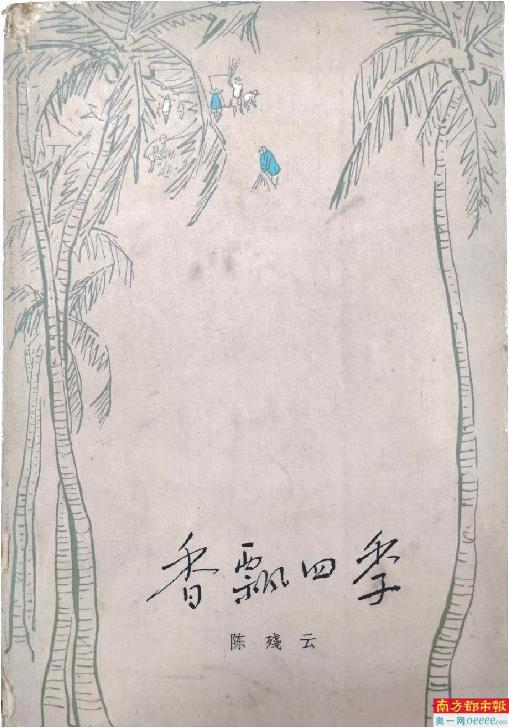 香飘四季
陈残云
南方都市報
奥一网oeeee.com